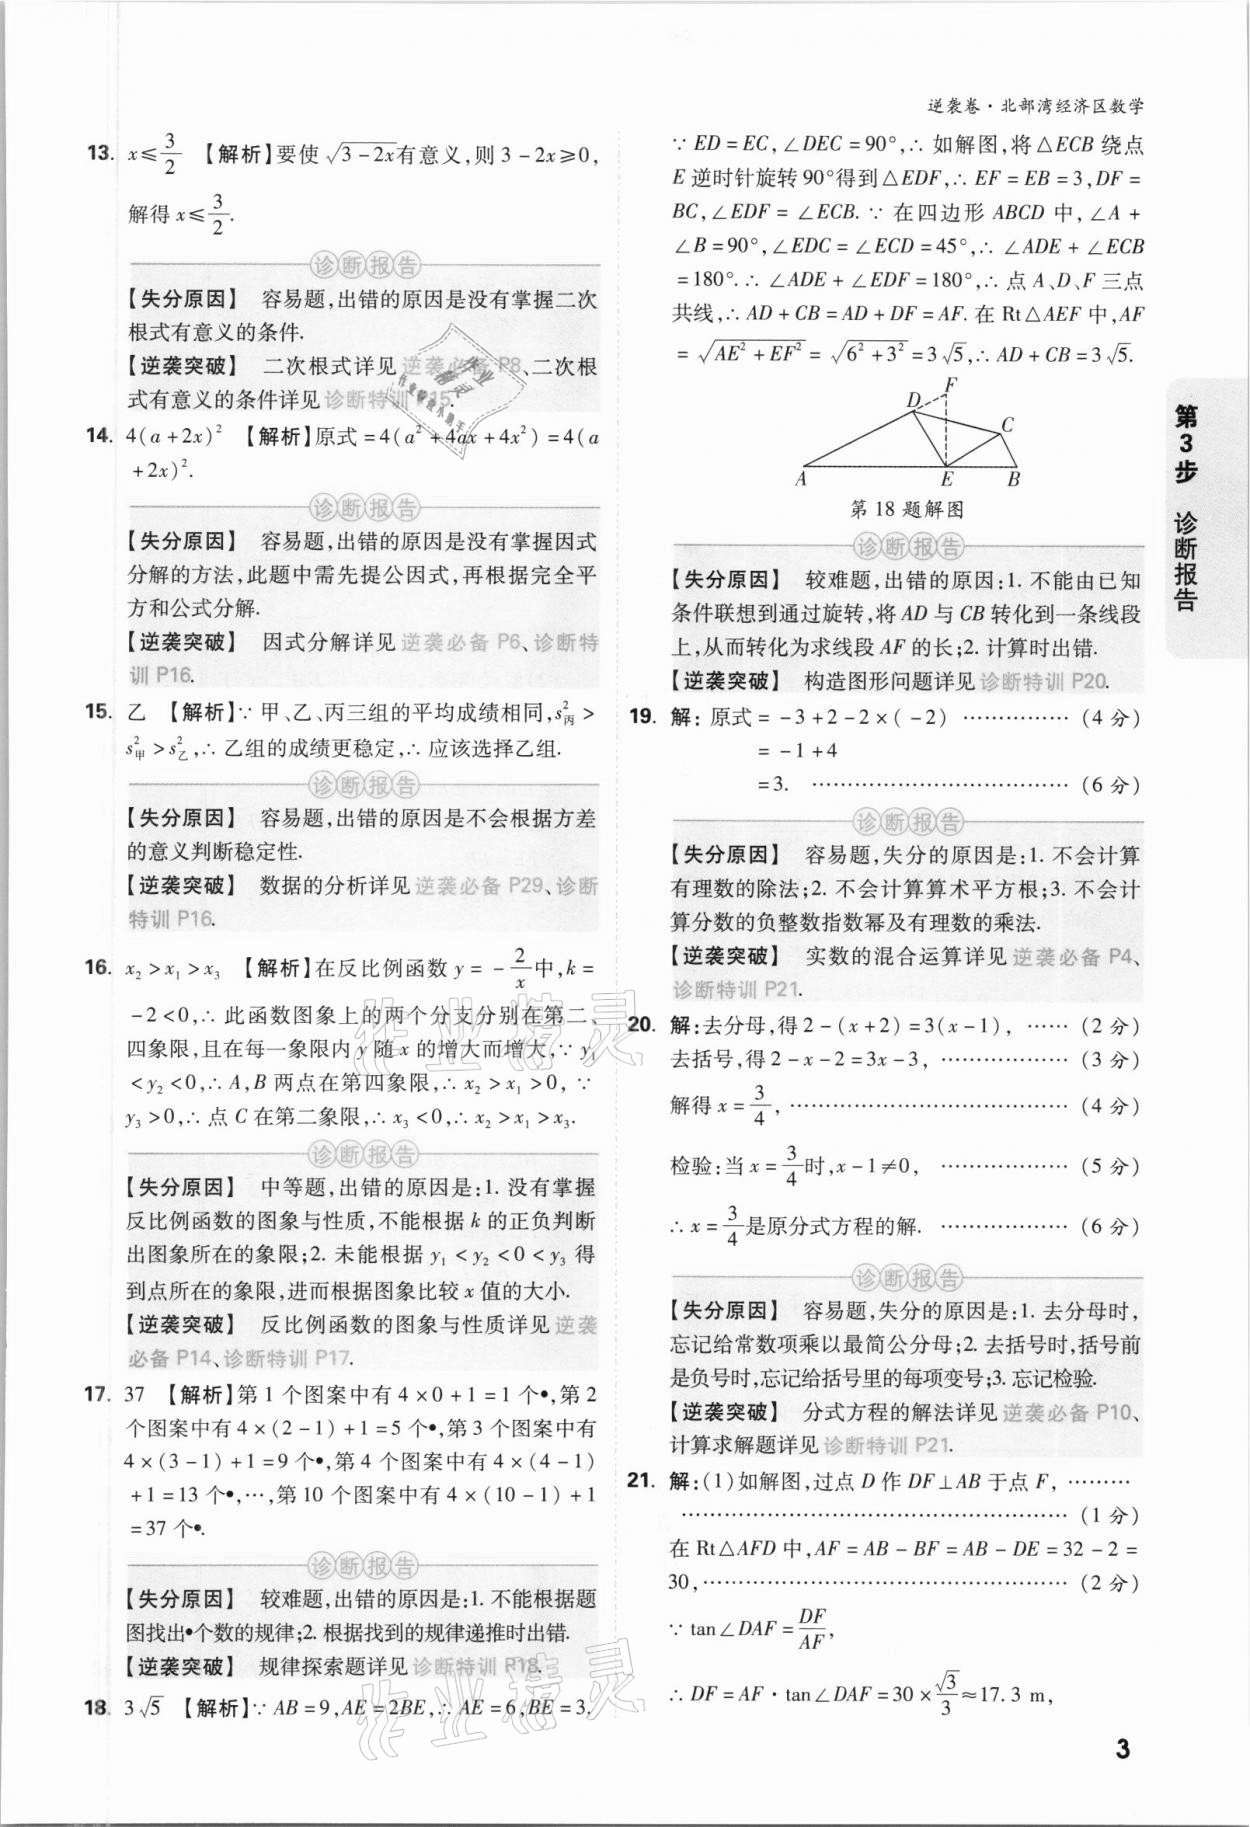 逆袭卷·北部湾经济区数学
13. x≤3/2 【解析】要使√(3-2x)有意义,则3-2x≥0,
解得x≤3/2.
诊断报告
【失分原因】 容易题,出错的原因是没有掌握二次
根式有意义的条件.
【逆袭突破】 二次根式详见逆袭必备 P8、二次根
式有意义的条件详见诊断特训 P15.
14. 4(a+2x)² 【解析】原式=4(a²+4ax+4x²)=4(a
+2x)².
诊断报告
【失分原因】 容易题,出错的原因是没有掌握因式
分解的方法,此题中需先提公因式,再根据完全平
方和公式分解.
【逆袭突破】 因式分解详见逆袭必备 P6、诊断特
训 P16.
15. 乙 【解析】∵甲、乙、丙三组的平均成绩相同,s²丙>
s²甲>s²乙,∴乙组的成绩更稳定,∴应该选择乙组.
诊断报告
【失分原因】 容易题,出错的原因是不会根据方差
的意义判断稳定性.
【逆袭突破】 数据的分析详见逆袭必备 P29、诊断
特训 P16.
16. x₂>x₁>x₃ 【解析】在反比例函数 y=-2/x中,k=
-2<0,∴此函数图象上的两个分支分别在第二、
四象限,且在每一象限内 y 随 x 的增大而增大,∵y₁
<y₂<0,∴A,B 两点在第四象限,∴x₂>x₁>0,∵
y₃>0,∴点 C 在第二象限,∴x₃<0,∴x₂>x₁>x₃.
诊断报告
【失分原因】 中等题,出错的原因是:1. 没有掌握
反比例函数的图象与性质,不能根据 k 的正负判断
出图象所在的象限;2. 未能根据 y₁<y₂<0<y₃ 得
到点所在的象限,进而根据图象比较 x 值的大小.
【逆袭突破】 反比例函数的图象与性质详见逆袭
必备 P14、诊断特训 P17.
17. 37 【解析】第 1 个图案中有 4×0+1=1 个•,第 2
个图案中有 4×(2-1)+1=5 个•,第 3 个图案中有
4×(3-1)+1=9 个•,第 4 个图案中有 4×(4-1)
+1=13 个•,…,第 10 个图案中有 4×(10-1)+1
=37 个•.
诊断报告
【失分原因】 较难题,出错的原因是:1. 不能根据题
图找出•个数的规律;2. 根据找到的规律递推时出错.
【逆袭突破】 规律探索题详见诊断特训 P18.
18. 3√5 【解析】∵AB=9,AE=2BE,∴AE=6,BE=3.
∵ED=EC,∠DEC=90°,∴如解图,将△ECB 绕点
E 逆时针旋转 90°得到△EDF,∴EF=EB=3,DF=
BC,∠EDF=∠ECB.∵在四边形 ABCD 中,∠A+
∠B=90°,∠EDC=∠ECD=45°,∴∠ADE+∠ECB
=180°.∴∠ADE+∠EDF=180°,∴点 A、D、F 三点
共线,∴AD+CB=AD+DF=AF.在 Rt△AEF 中,AF
=√(AE²+EF²)=√(6²+3²)=3√5,∴AD+CB=3√5.
F
D
C
A E B
第 18 题解图
诊断报告
【失分原因】 较难题,出错的原因:1. 不能由已知
条件联想到通过旋转,将 AD 与 CB 转化到一条线段
上,从而转化为求线段 AF 的长;2. 计算时出错.
【逆袭突破】 构造图形问题详见诊断特训 P20.
19. 解:原式=-3+2-2×(-2) …………… (4 分)
=-1+4
=3. ……………………………… (6 分)
诊断报告
【失分原因】 容易题,失分的原因是:1. 不会计算
有理数的除法;2. 不会计算算术平方根;3. 不会计
算分数的负整数指数幂及有理数的乘法.
【逆袭突破】 实数的混合运算详见逆袭必备 P4、
诊断特训 P21.
20. 解:去分母,得 2-(x+2)=3(x-1), …… (2 分)
去括号,得 2-x-2=3x-3, ……………… (3 分)
解得 x=3/4, ………………………………… (4 分)
检验:当 x=3/4时,x-1≠0, ……………… (5 分)
∴x=3/4是原分式方程的解. ……………… (6 分)
诊断报告
【失分原因】 容易题,失分的原因是:1. 去分母时,
忘记给常数项乘以最简公分母;2. 去括号时,括号前
是负号时,忘记给括号里的每项变号;3. 忘记检验.
【逆袭突破】 分式方程的解法详见逆袭必备 P10、
计算求解题详见诊断特训 P21.
21. 解:(1)如解图,过点 D 作 DF⊥AB 于点 F, ………
……………………………………………… (1 分)
在 Rt△AFD 中,AF=AB-BF=AB-DE=32-2=
30,…………………………………………… (2 分)
∵tan∠DAF=DF/AF,
∴DF=AF·tan∠DAF=30×√3/3≈17.3 m,
第3步 诊断报告
3
作业精灵
作业精灵